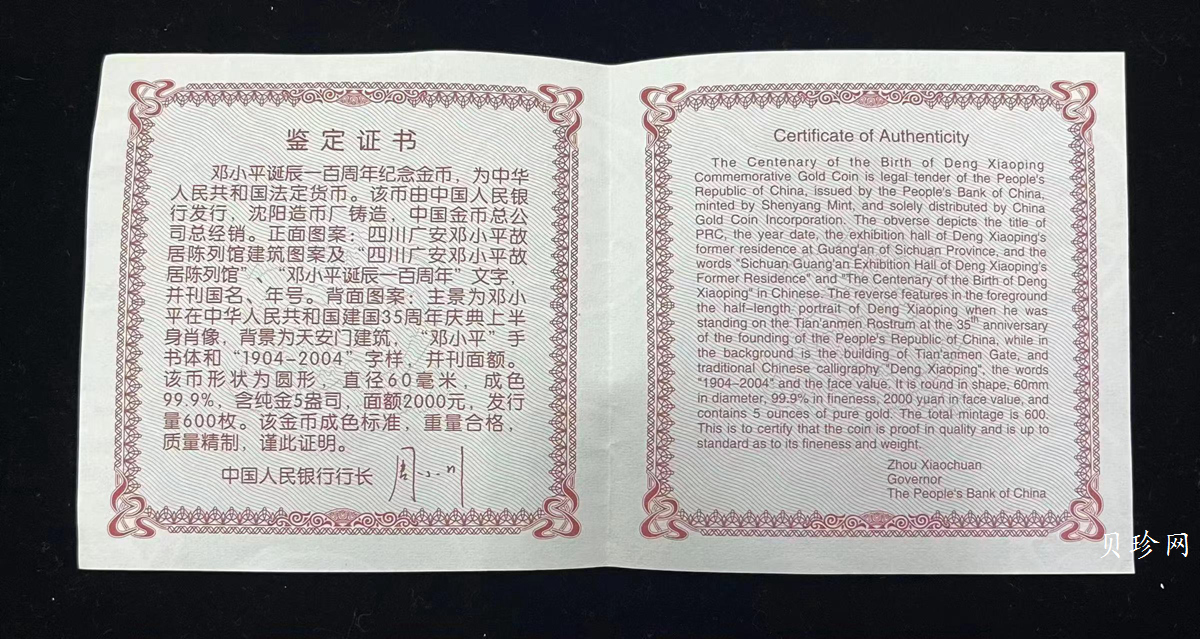 鉴定证书
邓小平诞辰一百周年纪念金币，为中华
人民共和国法定货币。该币由中国人民银
行发行，沈阳造币厂铸造，中国金币总公
司总经销。正面图案：四川广安邓小平故
居陈列馆建筑图案及“四川广安邓小平故
居陈列馆”、“邓小平诞辰一百周年”文字，
并刊国名、年号。背面图案：主景为邓小
平在中华人民共和国建国35周年庆典上半
身肖像，背景为天安门建筑，“邓小平”手
书体和“1904-2004”字样，并刊面额。
该币形状为圆形，直径60毫米，成色
99.9%，含纯金5盎司，面额2000元，发行
量600枚。该金币成色标准，重量合格，
质量精制，谨此证明。
中国人民银行行长 周小川
Certificate of Authenticity
The Centenary of the Birth of Deng Xiaoping
Commemorative Gold Coin is legal tender of the People's
Republic of China, issued by the People's Bank of China,
minted by Shenyang Mint, and solely distributed by China
Gold Coin Incorporation. The obverse depicts the title of
PRC, the year date, the exhibition hall of Deng Xiaoping's
former residence at Guang'an of Sichuan Province, and the
words "Sichuan Guang'an Exhibition Hall of Deng Xiaoping's
Former Residence" and "The Centenary of the Birth of Deng
Xiaoping" in Chinese. The reverse features in the foreground
the half-length portrait of Deng Xiaoping when he was
standing on the Tian'anmen Rostrum at the 35th anniversary
of the founding of the People's Republic of China, while in
the background is the building of Tian'anmen Gate, and
traditional Chinese calligraphy "Deng Xiaoping", the words
"1904-2004" and the face value. It is round in shape, 60mm
in diameter, 99.9% in fineness, 2000 yuan in face value, and
contains 5 ounces of pure gold. The total mintage is 600.
This is to certify that the coin is proof in quality and is up to
standard as to its fineness and weight.
Zhou Xiaochuan
Governor
The People's Bank of China
贝珍网